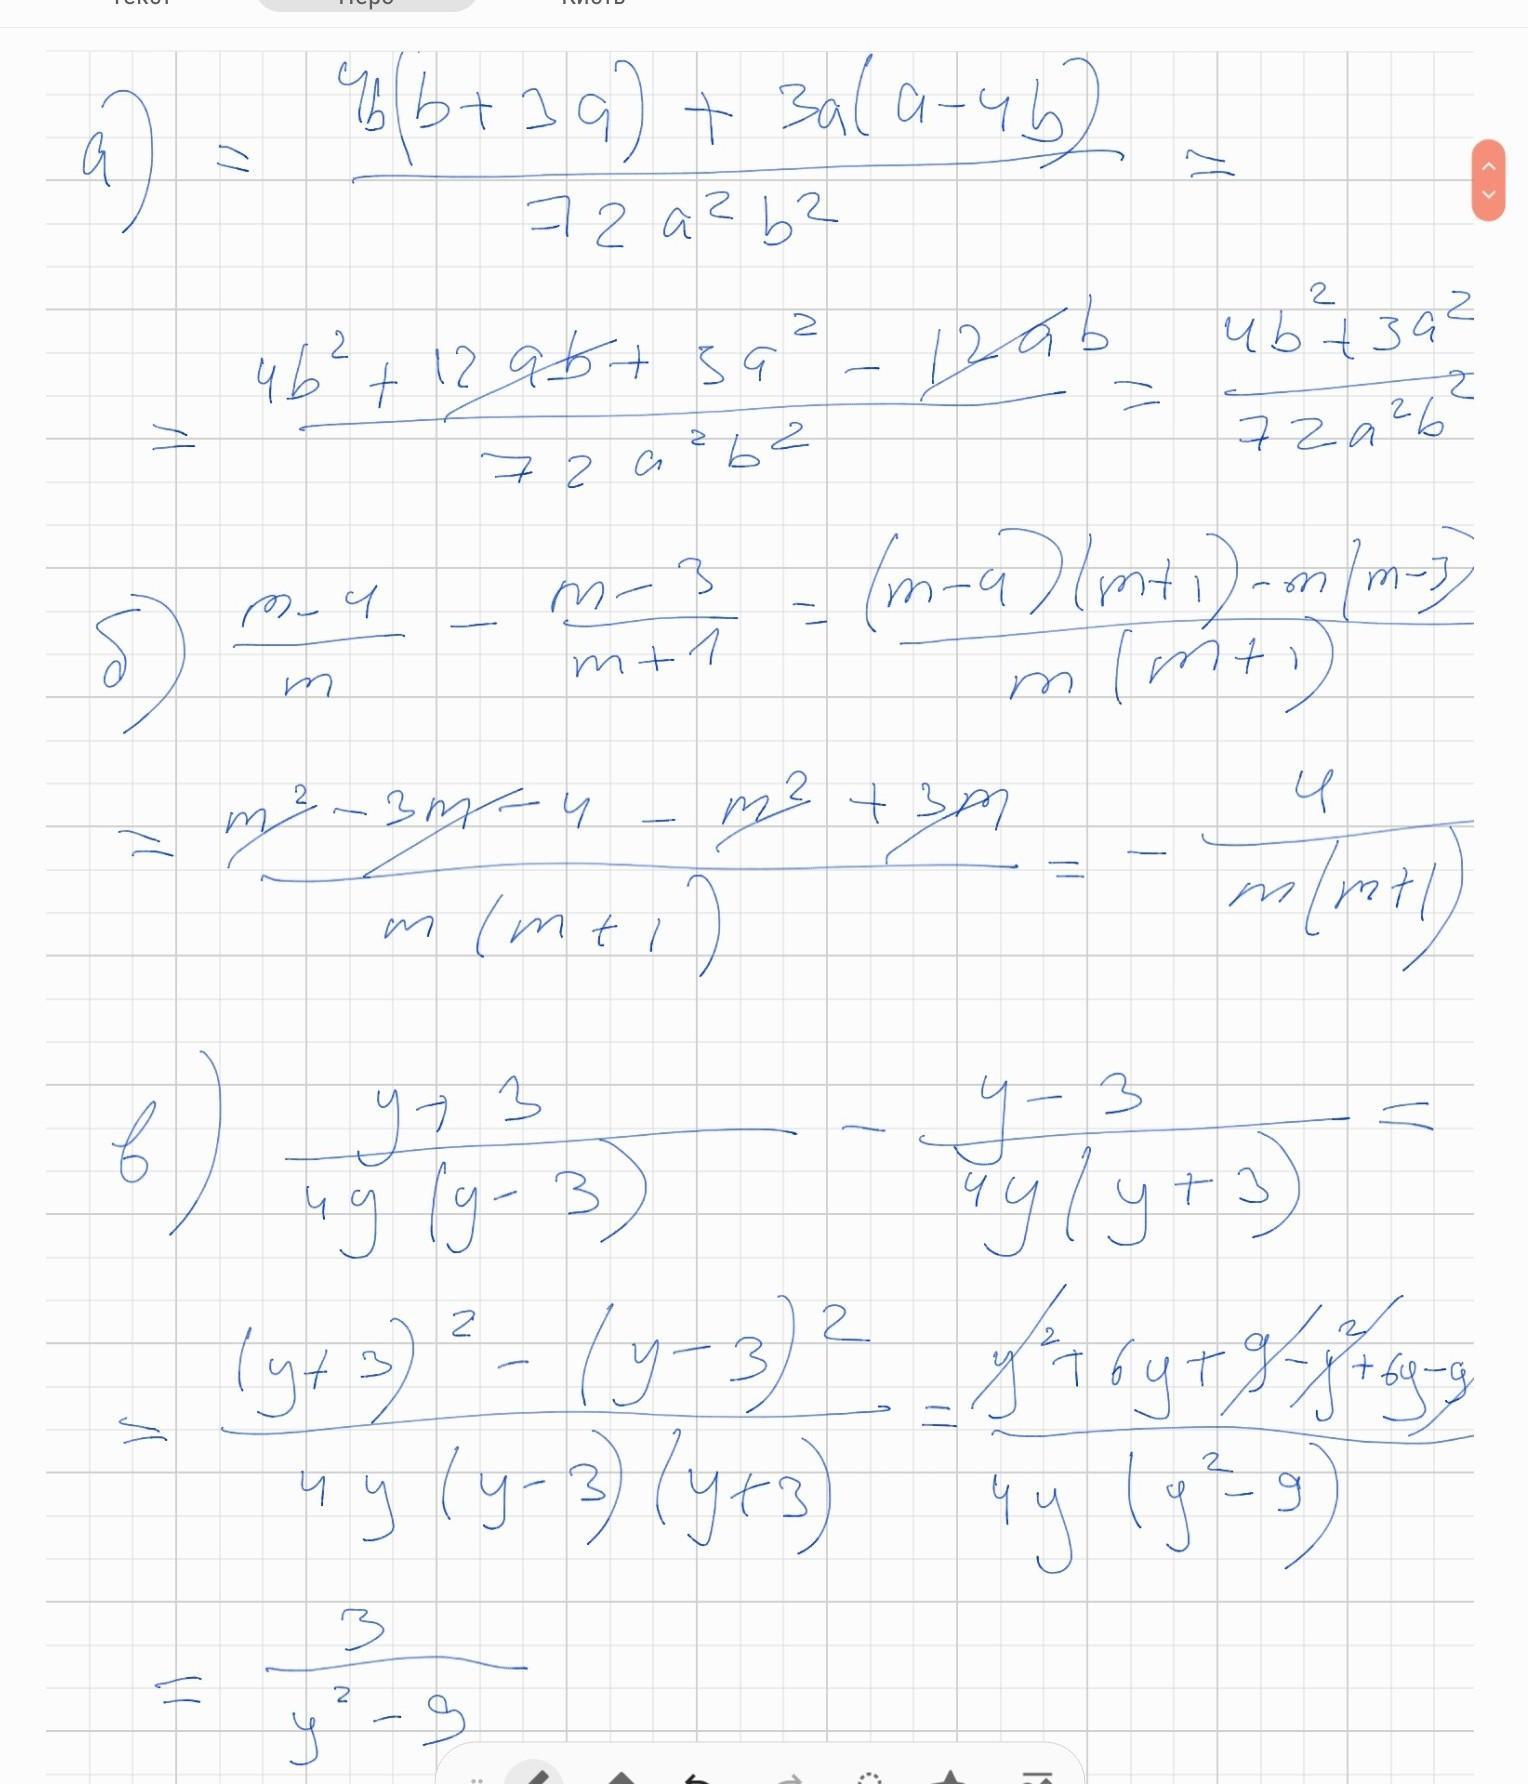 Текст Перо Кисть
а) = (4b(b+3a) + 3a(a-4b)) / (72a²b²) =
= (4b² + 12ab + 3a² - 12ab) / (72a²b²) = (4b² + 3a²) / (72a²b²)
б) (m-4)/m - (m-3)/(m+1) = ((m-4)(m+1) - m(m-3)) / (m(m+1))
= (m² - 3m - 4 - m² + 3m) / (m(m+1)) = - 4/(m(m+1))
в) (y+3)/(4y(y-3)) - (y-3)/(4y(y+3)) =
= ((y+3)² - (y-3)²) / (4y(y-3)(y+3)) = (y² + 6y + 9 - y² + 6y - 9) / (4y(y²-9))
= 3/(y²-9)